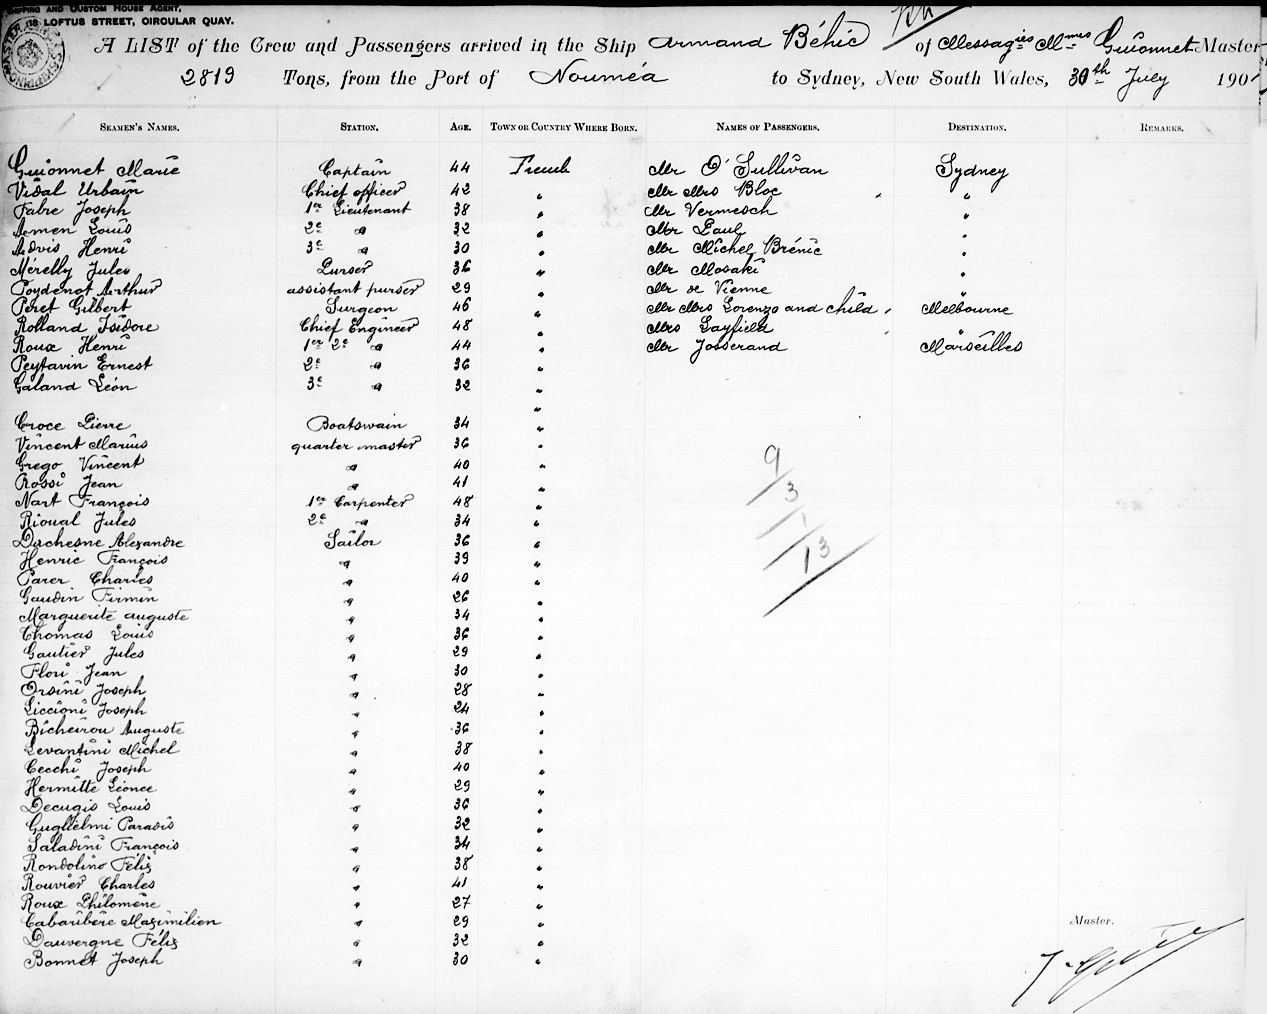 SHIPPING AND CUSTOM HOUSE AGENT,
LOFTUS STREET, CIRCULAR QUAY.
A LIST of the Crew and Passengers arrived in the Ship Armand Béhic of Messagies Mmes Guionnet Master
2819 Tons, from the Port of Nouméa to Sydney, New South Wales, 30th July 190
SEAMEN'S NAMES. STATION. AGE. TOWN OR COUNTRY WHERE BORN. NAMES OF PASSENGERS. DESTINATION. REMARKS.
Guionnet Marie Captain 44 French Mr O'Sullivan Sydney
Vidal Urbain Chief officer 42 " Mr Mrs Bloc "
Fabre Joseph 1er Lieutenant 38 " Mr Vermesch "
Armen Louis 2e " 32 " Mr Paul "
Advis Henri 3e " 30 " Mr Michel Brénic "
Mérelly Jules Purser 36 " Mr Mosaki "
Poydenot Arthur assistant purser 29 " Mr de Vienne "
Péret Gilbert Surgeon 46 " Mr Mrs Lorenzo and child Melbourne
Rolland Isidore Chief Engineer 48 " Mrs Layfield "
Roux Henri 1er 2e " 44 " Mr Josserand Marseilles
Peytavin Ernest 2e " 36 "
Galand Léon 3e " 32 "
"
Croce Pierre Boatswain 34 "
Vincent Marius quarter master 36 "
Grego Vincent " 40 "
Rossi Jean " 41 "
Nart François 1er Carpenter 48 "
Rioual Jules 2e " 34 "
Duchesne Alexandre Sailor 36 "
Henric François " 39 "
Parer Charles " 40 "
Gaudin Firmin " 26 "
Marguerite auguste " 34 "
Thomas Louis " 36 "
Gautier Jules " 29 "
Flori Jean " 30 "
Orsini Joseph " 28 "
Liccioni Joseph " 24 "
Bicheirou Auguste " 36 "
Levantini Michel " 38 "
Cecchi Joseph " 40 "
Hermitte Léonce " 29 "
Decugis Louis " 36 "
Guglielmi Paradis " 32 "
Saladini François " 34 "
Rondolino Félix " 38 "
Rouvier Charles " 41 "
Roux Philomène " 27 "
Cabaribère Maximilien " 29 "
Dauvergne Félix " 32 "
Bonnet Joseph " 30 "
9
3
1
13
Master.